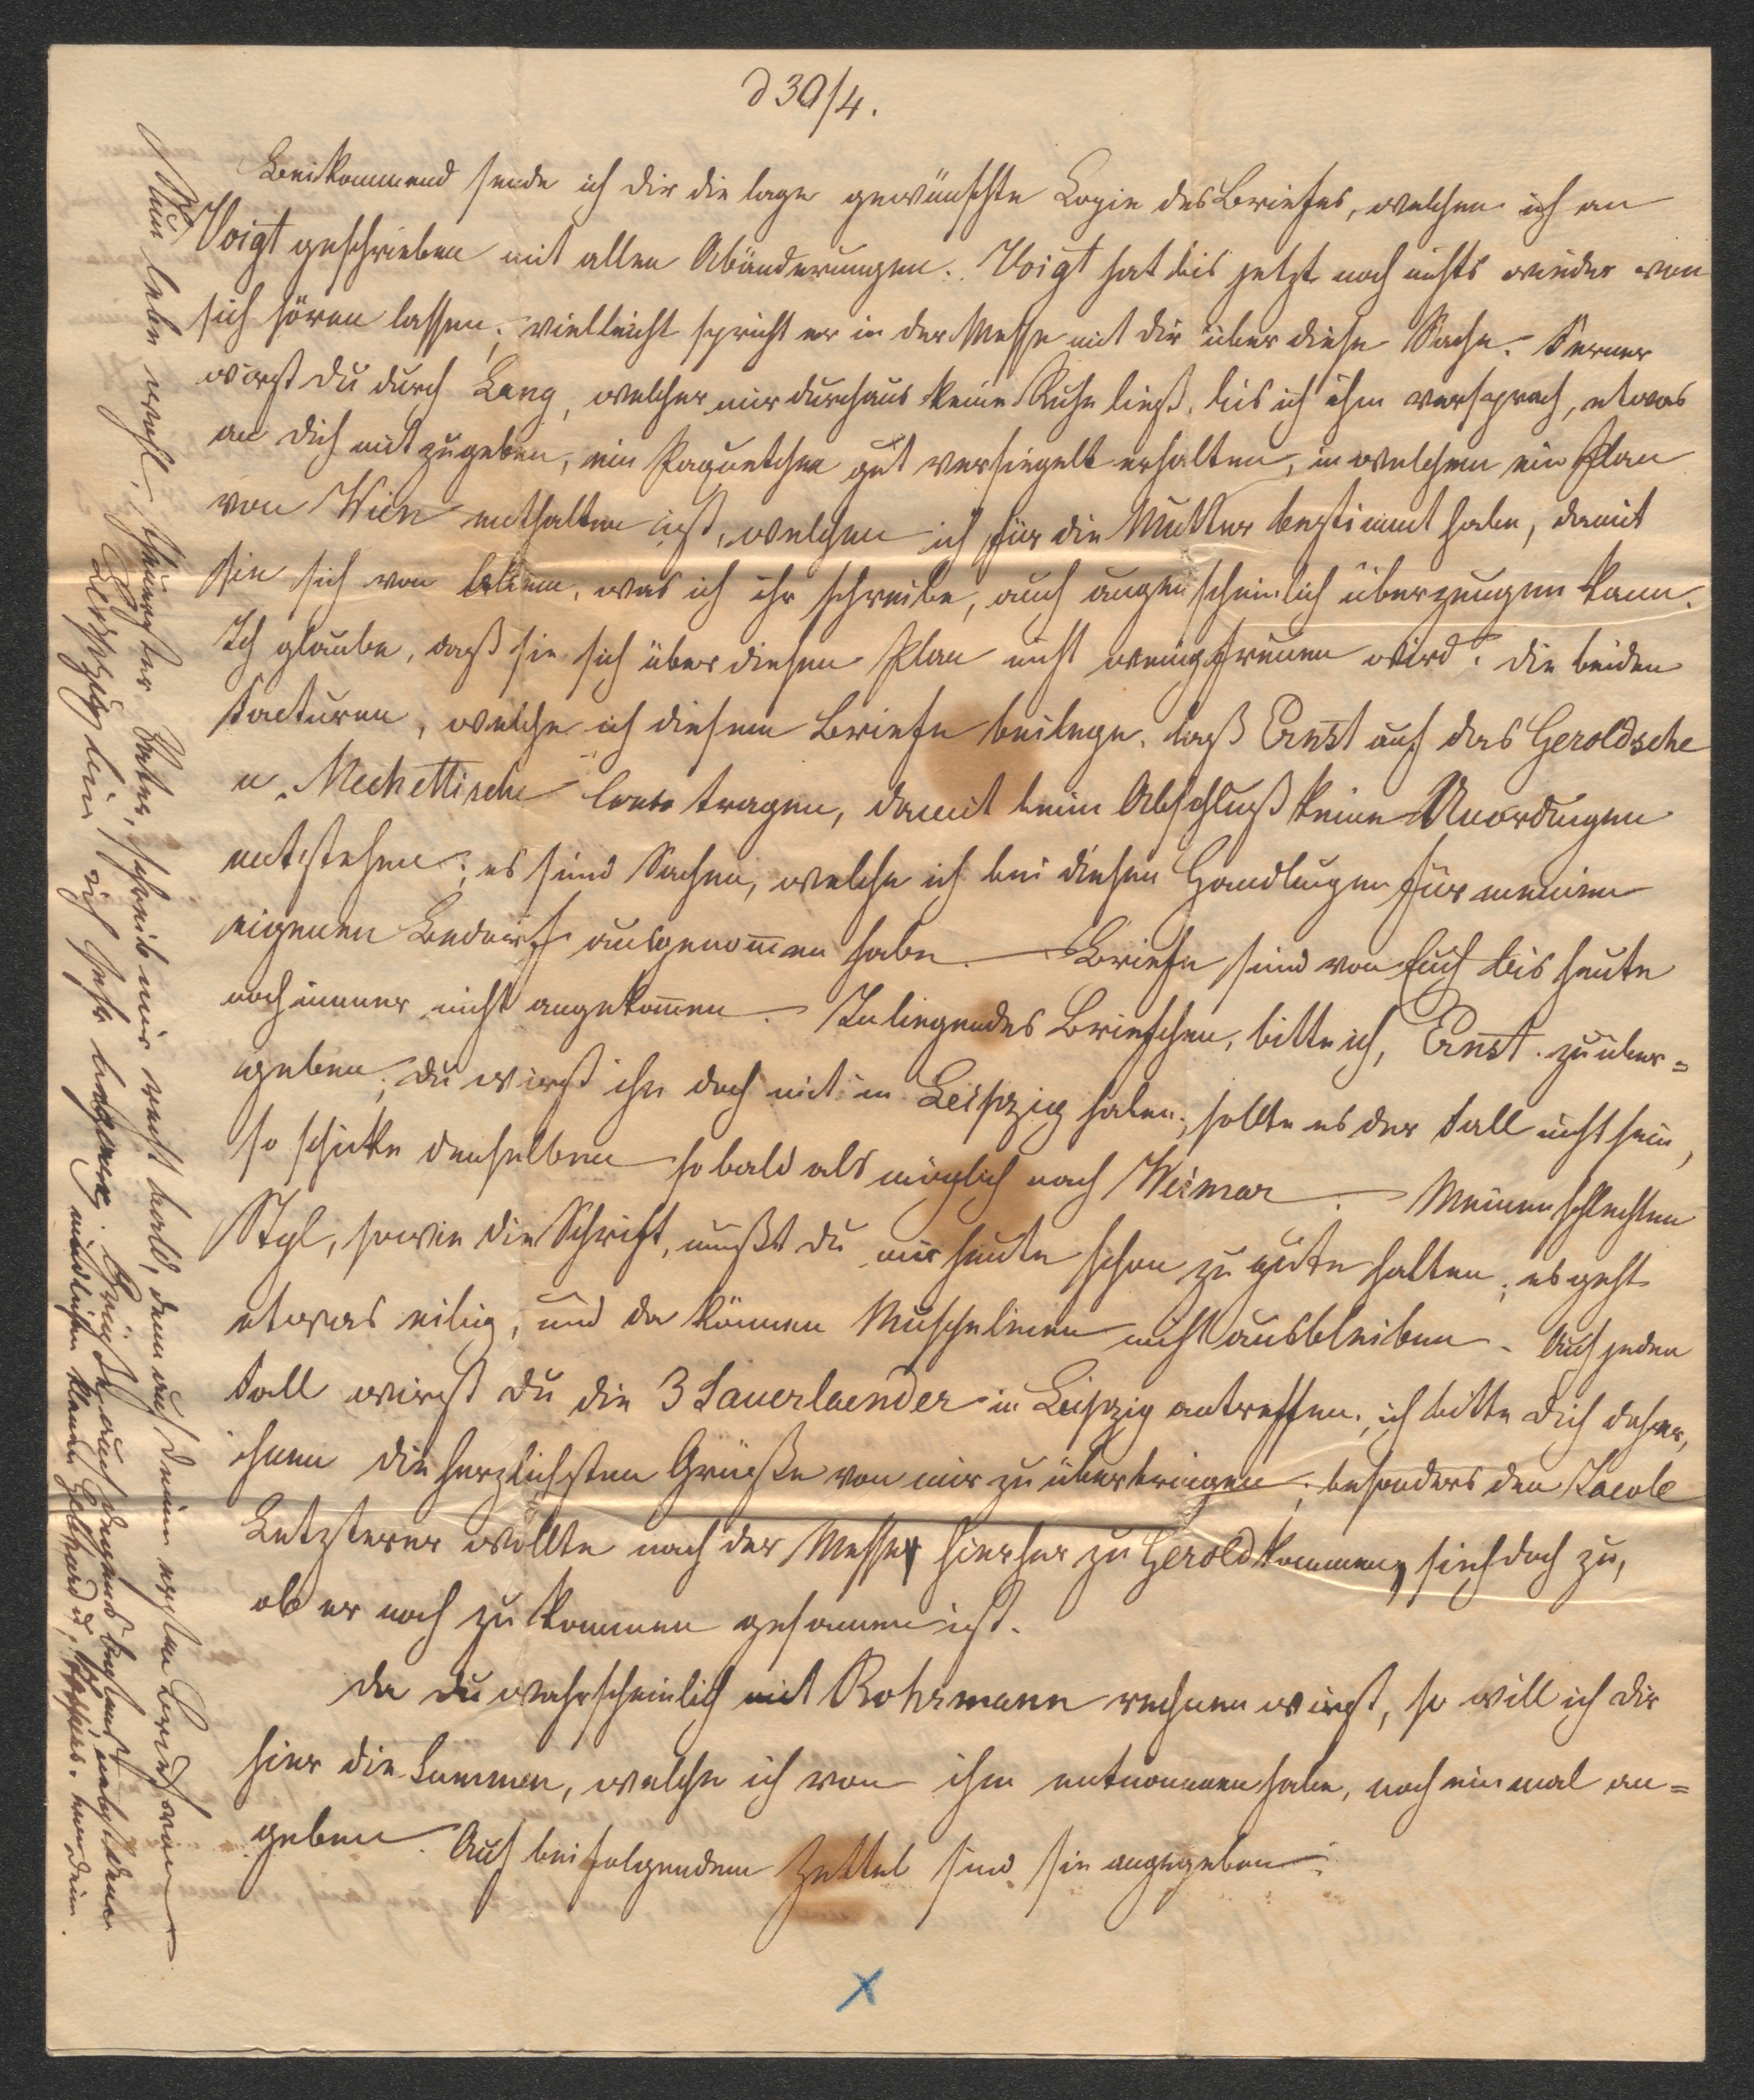 d 30/4.
Beikommend sende ich dir die lage gewünschte Copie des Briefes, welchen ich an
Voigt geschrieben mit allen Abänderungen. Voigt hat bis jetzt noch nichts wieder von
sich hören lassen; vielleicht spricht er in der Messe mit dir über diese Sache. Ferner
wirst du durch Lang, welcher mir durchaus keine Ruhe ließ, bis ich ihm versprach, etwas
an dich mitzugeben, ein Paquetchen gut versiegelt erhalten, in welchem ein Plan
von Wien enthalten ist, welchen ich für die Mutter bestimmt habe, damit
sie sich von allem, was ich ihr schreibe, auch augenscheinlich überzeugen kann.
Ich glaube, daß sie sich über diesen Plan nicht wenig freuen wird. die beiden
Facturen, welche ich diesem Briefe beilege, laß Ernst auf das Geroldsche
u. Mechettische Conto tragen, damit beim Abschluß keine Unordnungen
entstehen; es sind Sachen, welche ich bei diesen Handlungen für meinen
eigenen Bedarf ausgenom̅en habe. — Briefe sind von Euch bis heute
noch immer nicht angekom̅en. — Inliegendes Briefchen, bitte ich, Ernst zu über=
geben; du wirst ihn doch mit in Leipzig haben; sollte es der Fall nicht sein,
so schicke denselben sobald als möglich nach Weimar. — Meinen schlechten
Styl, sowie die Schrift, mußt du mir heute schon zu gute halten; es geht
etwas eilig, und da können nicht ausbleiben. Auf jeden
Fall wirst du die 3 Sauerlaender in Leipzig antreffen; ich bitte dich daher,
ihnen die herzlichsten Grüße von mir zu überbringen; besonders den Jacob
Letzterer wollte nach der Messe hierher zu Gerold kommen, sieh doch zu,
ob er noch zu kommen gesonnen ist.
da du wahrscheinlich mit Rohrmann rechnen wirst, so will ich dir
hier die Summen, welche ich von ihm entnommen habe, noch einmal an=
geben. Auf beifolgendem Zettel sind sie angegeben.
Nun lebe wohl, theuerster Vater, schreib mir recht bald, denn auf deinen ersten Brief von
Leipzig bin ich sehr begierig. Grüße auch